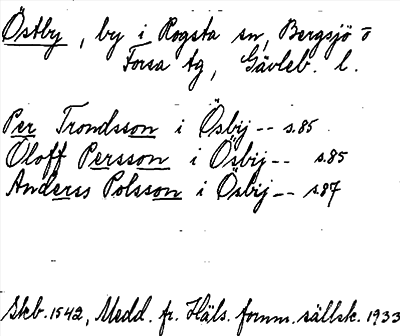 Östby, by i Rogsta sn, Bergsjö o
Forsa tg, Gävleb. l.
Per Trondsson i Ösbij -- s.85
Oloff Persson i Ösbij -- s.85
Anderss Polsson i Ösbij -- s.87
Skb. 1542, Medd. fr. Häls. fornm. sällsk. 1933